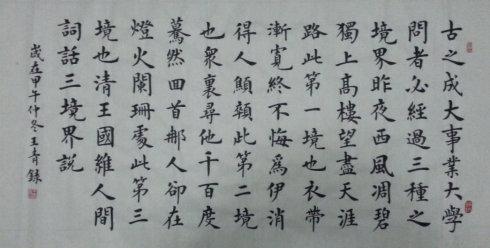 古之成大事業大學
問者必經過三種之
境界昨夜西風凋碧
獨上高樓望盡天涯
路此第一境也衣帶
漸寬終不悔爲伊消
得人顦顇此第二境
也衆裏尋他千百度
驀然回首那人卻在
燈火闌珊處此第三
境也清王國維人間
詞話三境界說
歲在甲午仲冬王青錄